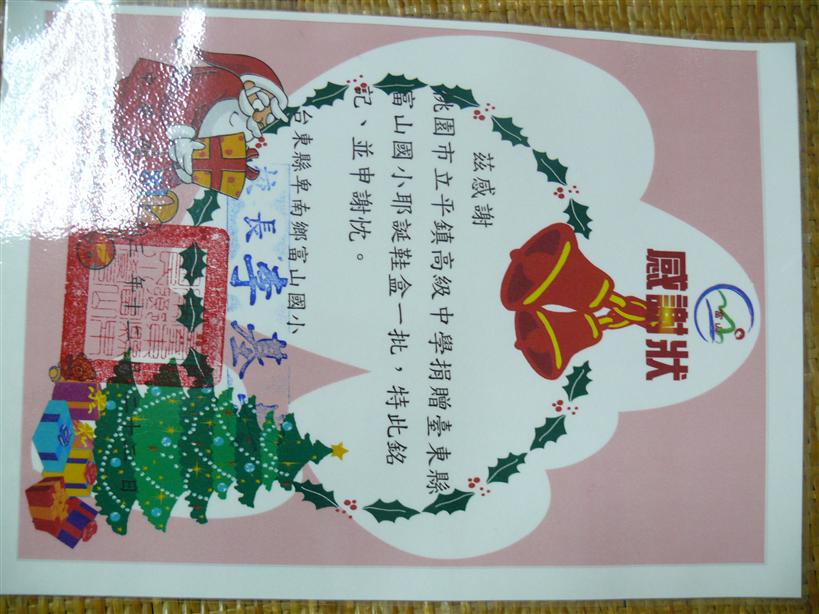 富山
感謝狀
茲感謝
桃園市立平鎮高級中學捐贈臺東縣
富山國小耶誕鞋盒一批，特此銘
記、並申謝忱。
台東縣卑南鄉富山國小
校長李
年十二月二十 日